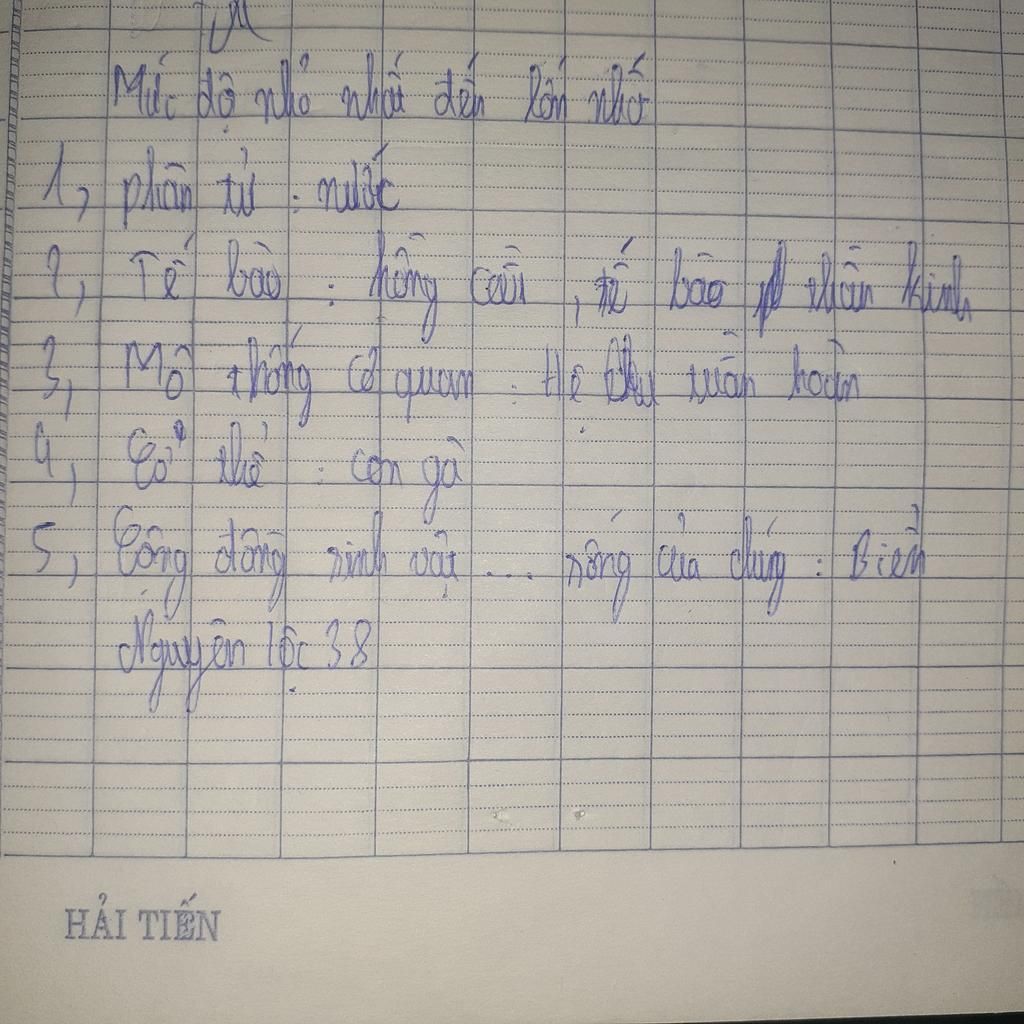 Mức độ nhỏ nhất đến lớn nhớ
1, phân tử : nước
2, Tế bào : hồng cầu , tế bào thần kinh
3, Mô thống cơ quan : Hệ tuần hoàn
4, Cơ thể : con gà
5, Cộng đồng sinh vật ... sống của chúng : Biển
Nguyên lộc 38
HẢI TIẾN